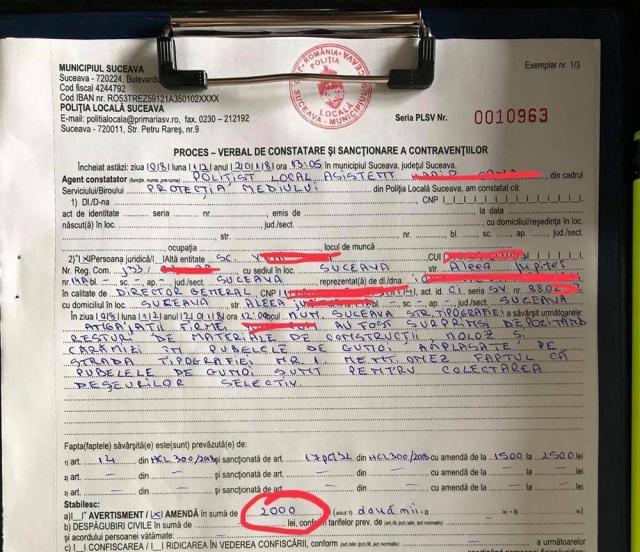 MUNICIPIUL SUCEAVA
Suceava - 720224, Bulevardu
Cod fiscal 4244792
Cod IBAN nr. RO53TREZ59121A350102XXXX
POLIȚIA LOCALĂ SUCEAVA
E-mail: politialocala@primariasv.ro, fax. 0230 – 212192
Suceava - 720011, Str. Petru Rareș, nr.9
ROMÂNIA
POLIȚIA
LOCALĂ
SUCEAVA
Exemplar nr. 1/3
Seria PLSV Nr. 0010963
PROCES – VERBAL DE CONSTATARE ȘI SANCȚIONARE A CONTRAVENȚIILOR
Încheiat astăzi: ziua |0|8| luna |1|2| anul |2|0|1|8| ora 13:05 în municipiul Suceava, județul Suceava.
Agent constatator (funcție, nume, prenume) POLIȚIST LOCAL ASISTENT din cadrul
Serviciului/Biroului PROTECȚIA MEDIULUI din Poliția Locală Suceava, am constatat că:
1) Dl/D-na CNP
act de identitate seria nr. emis de la data
născut(ă) în loc. jud./sect. cu domiciliul/reședința în loc.
str. nr. bl. sc. ap. jud./sect.
ocupația locul de muncă
2) |X|Persoana juridică/|_|Altă entitate SC. CUI
Nr. Reg. Com. J33/ cu sediul în loc. SUCEAVA str. Aleea Jupiter
nr. bl. sc. ap. jud./sect. SUCEAVA, reprezentat(ă) de dl./dna.
în calitate de DIRECTOR GENERAL CNP act. id. C.I. seria SV nr. 880
cu domiciliul în loc. SUCEAVA str. ALEEA nr. bl. sc. ap. jud./sect. SUCEAVA
În ziua |0|8| luna |1|2| anul |2|0|1|8| ora 12:00 locul MUN. SUCEAVA STR. TIPOGRAFIEI a săvârșit următoarele:
ANGAJAȚII FIRMEI AU FOST SURPRINȘI DEPOZITÂND
RESTURI DE MATERIALE DE CONSTRUCȚII MOLOZ ȘI
CĂRĂMIZI ÎN PUBELELE DE GUNOI AMPLASATE PE
STRADA TIPOGRAFIEI NR. 1. MENȚIONEZ FAPTUL CĂ
PUBELELE DE GUNOI SUNT PENTRU COLECTAREA
DEȘEURILOR SELECTIV.
Fapta(faptele) săvârșită(e) este(sunt) prevăzută(e) de:
1) art. 14 din HCL 300/2018 și sancționată de art. 17 pct. din HCL 300/2018 cu amendă de la 1500 la 2500 lei
2) art. – din – și sancționată de art. – din – cu amendă de la – la – lei
3) art. – din – și sancționată de art. – din – cu amendă de la – la – lei
Stabilesc:
a)|_| AVERTISMENT / |X| AMENDĂ în sumă de 2000 două mii
b) DESPĂGUBIRI CIVILE în sumă de lei, conform tarifelor prev. de
și acordului persoanei vătămate:
c) |_| CONFISCAREA / |_| RIDICAREA ÎN VEDEREA CONFISCĂRII, conform a următoarelor